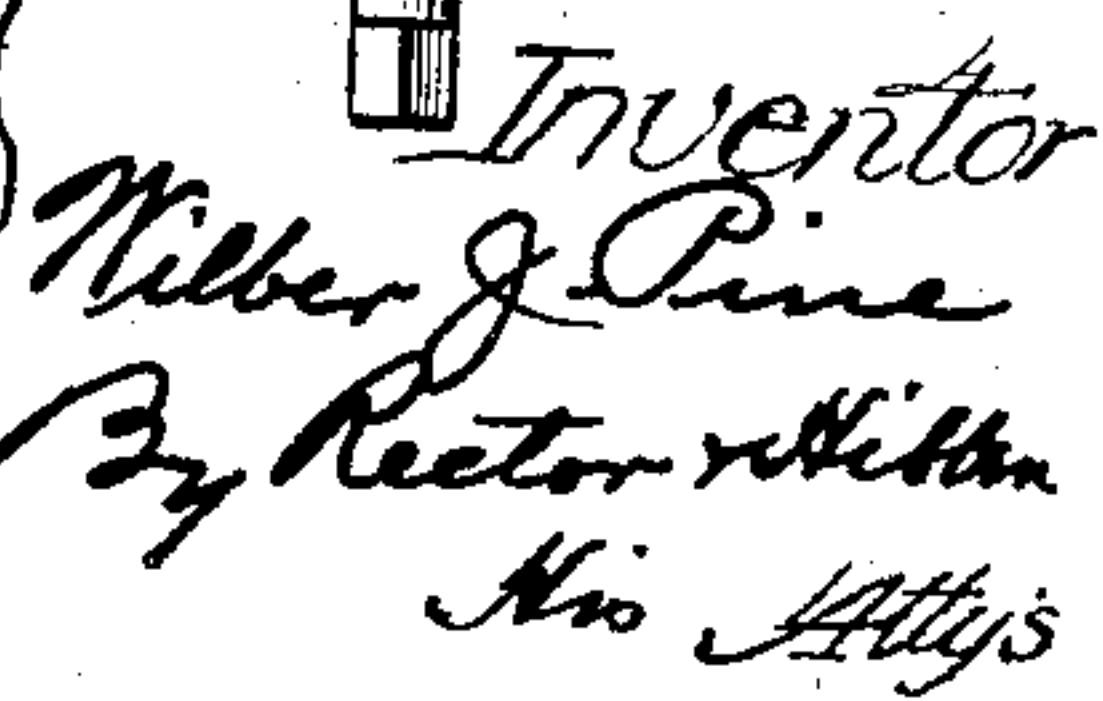 Inventor
Wilber J. Pine
By Rector & Hibben
His Att'ys